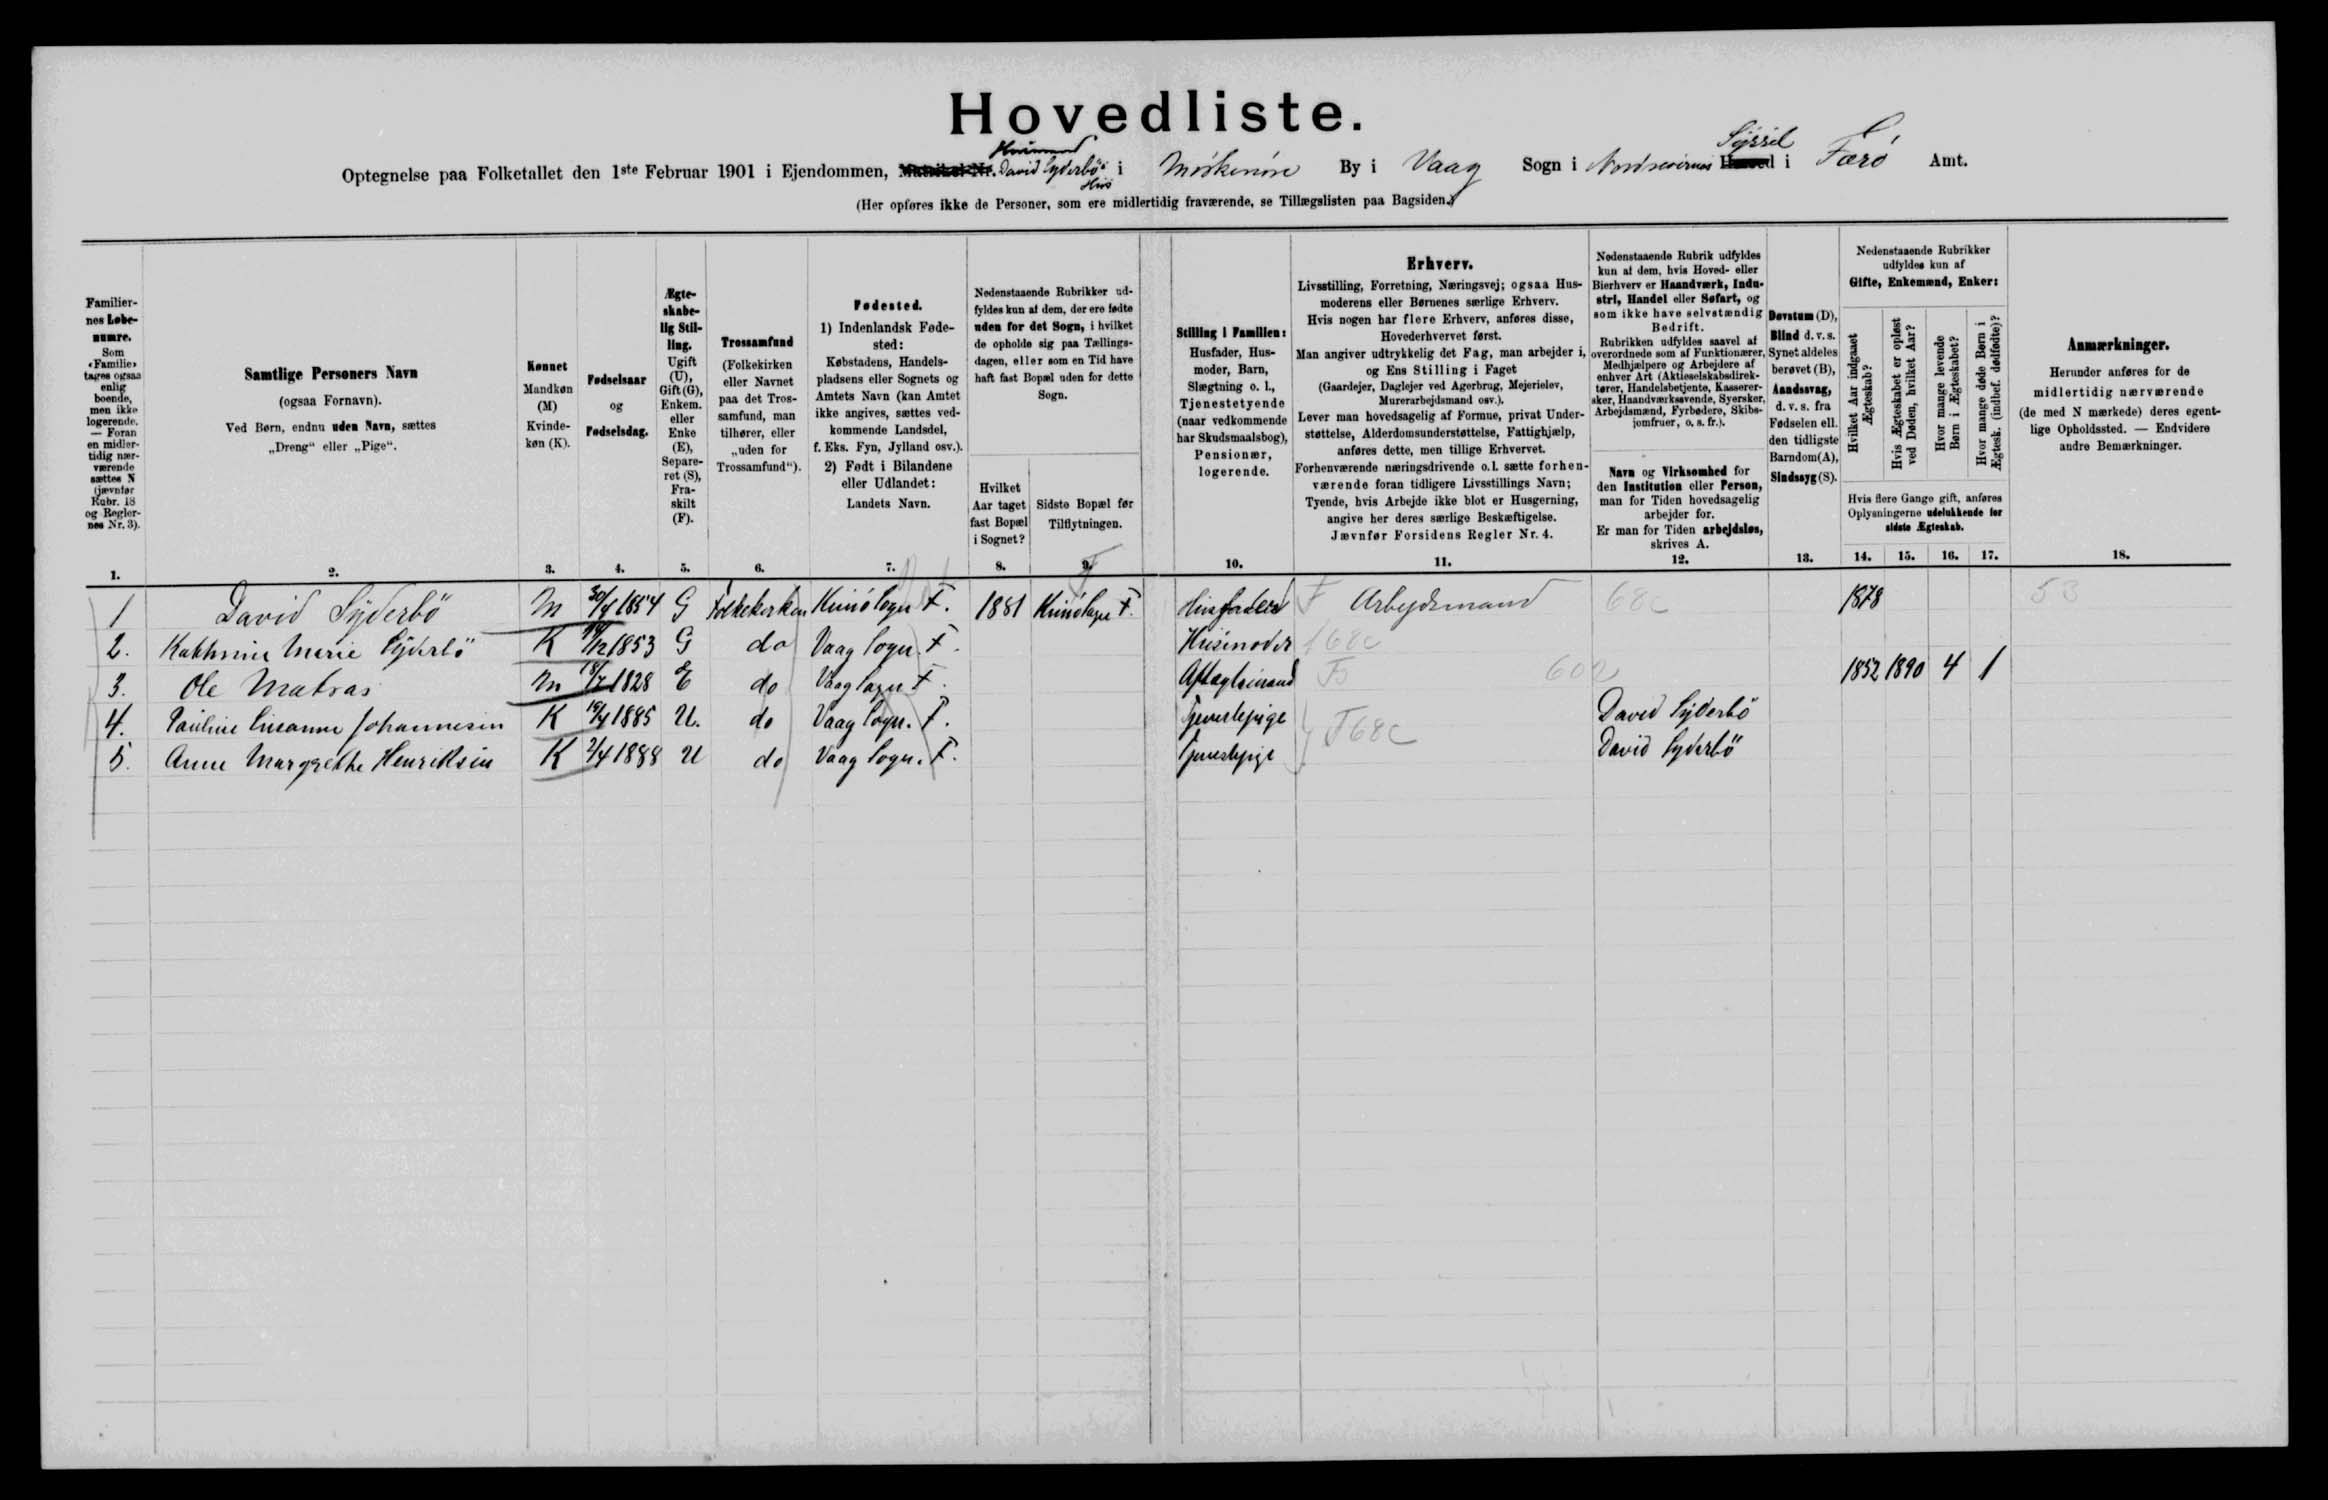 Hovedliste.
Optegnelse paa Folketallet den 1ste Februar 1901 i Ejendommen, Matrikel-Nr. Huusmand David Syderbö's Hus i Mörkenöre By i Vaag Sogn i Norderøernes Herred Syssel i Færö Amt.
(Her opføres ikke de Personer, som ere midlertidig fraværende, se Tillægslisten paa Bagsiden.)
Familiernes Løbenumre.
Som «Familie» tages ogsaa enlig boende, men ikke logerende. — Foran en midlertidig nærværende sættes N (jævnfør Rubr. 18 og Reglernes Nr. 3).
Samtlige Personers Navn
(ogsaa Fornavn).
Ved Børn, endnu uden Navn, sættes
„Dreng“ eller „Pige“.
Kønnet
Mandkøn (M)
Kvindekøn (K).
Fødselsaar
og
Fødselsdag.
Ægteskabelig Stilling.
Ugift (U), Gift (G), Enkem. eller Enke (E), Separeret (S), Fraskilt (F).
Trossamfund
(Folkekirken eller Navnet paa det Trossamfund, man tilhører, eller „uden for Trossamfund“).
Fødested.
1) Indenlandsk Fødested:
Købstadens, Handelspladsens eller Sognets og Amtets Navn (kan Amtet ikke angives, sættes vedkommende Landsdel, f. Eks. Fyn, Jylland osv.).
2) Født i Bilandene eller Udlandet:
Landets Navn.
Nedenstaaende Rubrikker udfyldes kun af dem, der ere fødte uden for det Sogn, i hvilket de opholde sig paa Tællingsdagen, eller som en Tid have haft fast Bopæl uden for dette Sogn.
Hvilket Aar taget fast Bopæl i Sognet?
Sidste Bopæl før Tilflytningen.
Stilling i Familien:
Husfader, Husmoder, Barn, Slægtning o. l., Tjenestetyende (naar vedkommende har Skudsmaalsbog), Pensionær, logerende.
Erhverv.
Livsstilling, Forretning, Næringsvej; ogsaa Husmoderens eller Børnenes særlige Erhverv.
Hvis nogen har flere Erhverv, anføres disse, Hovederhvervet først.
Man angiver udtrykkelig det Fag, man arbejder i, og Ens Stilling i Faget
(Gaardejer, Daglejer ved Agerbrug, Mejerielev, Murerarbejdsmand osv.).
Lever man hovedsagelig af Formue, privat Understøttelse, Alderdomsunderstøttelse, Fattighjælp, anføres dette, men tillige Erhvervet.
Forhenværende næringsdrivende o. l. sætte forhenværende foran tidligere Livsstillings Navn;
Tyende, hvis Arbejde ikke blot er Husgerning, angive her deres særlige Beskæftigelse.
Jævnfør Forsidens Regler Nr. 4.
Nedenstaaende Rubrik udfyldes kun af dem, hvis Hoved- eller Bierhverv er Haandværk, Industri, Handel eller Søfart, og som ikke have selvstændig Bedrift.
Rubrikken udfyldes saavel af overordnede som af Funktionærer, Medhjælpere og Arbejdere af enhver Art (Aktieselskabsdirektører, Handelsbetjente, Kasserersker, Haandværkssvende, Syersker, Arbejdsmænd, Fyrbødere, Skibsjomfruer, o. s. fr.).
Navn og Virksomhed for den Institution eller Person, man for Tiden hovedsagelig arbejder for.
Er man for Tiden arbejdsløs, skrives A.
Døvstum (D),
Blind d. v. s. Synet aldeles berøvet (B),
Aandssvag, d. v. s. fra Fødselen ell. den tidligste Barndom (A),
Sindssyg (S).
Nedenstaaende Rubrikker udfyldes kun af
Gifte, Enkemænd, Enker:
Hvilket Aar indgaaet Ægteskab?
Hvis Ægteskabet er opløst ved Døden, hvilket Aar?
Hvor mange levende Børn i Ægteskabet?
Hvor mange døde Børn i Ægtesk. (indbef. dødfødte)?
Hvis flere Gange gift, anføres Oplysningerne udelukkende for sidste Ægteskab.
Anmærkninger.
Herunder anføres for de midlertidig nærværende (de med N mærkede) deres egentlige Opholdssted. — Endvidere andre Bemærkninger.
1. 2. 3. 4. 5. 6. 7. 8. 9. 10. 11. 12. 13. 14. 15. 16. 17. 18.
1 David Syderbö M 30/4 1854 G Folkekirken Kunö Sogn F. 1881 Kunö Sogn F. Husfader F Arbejdsmand 68c 1878 53
2. Kathrine Marie Syderbö K /12 1853 G do Vaag Sogn. F. Husmoder f 68c
3. Ole Matras M 18/7 1828 E do Vaag Sogn F. Aftægtsmand F 602 1852 1890 4 1
4. Pauline Susanne Johannesen K 19/4 1885 U. do Vaag Sogn. F. Tjenestepige David Syderbö
T 68c
5. Anne Margrethe Henriksen K 2/4 1888 U do Vaag Sogn. F. Tjenestepige David Syderbö